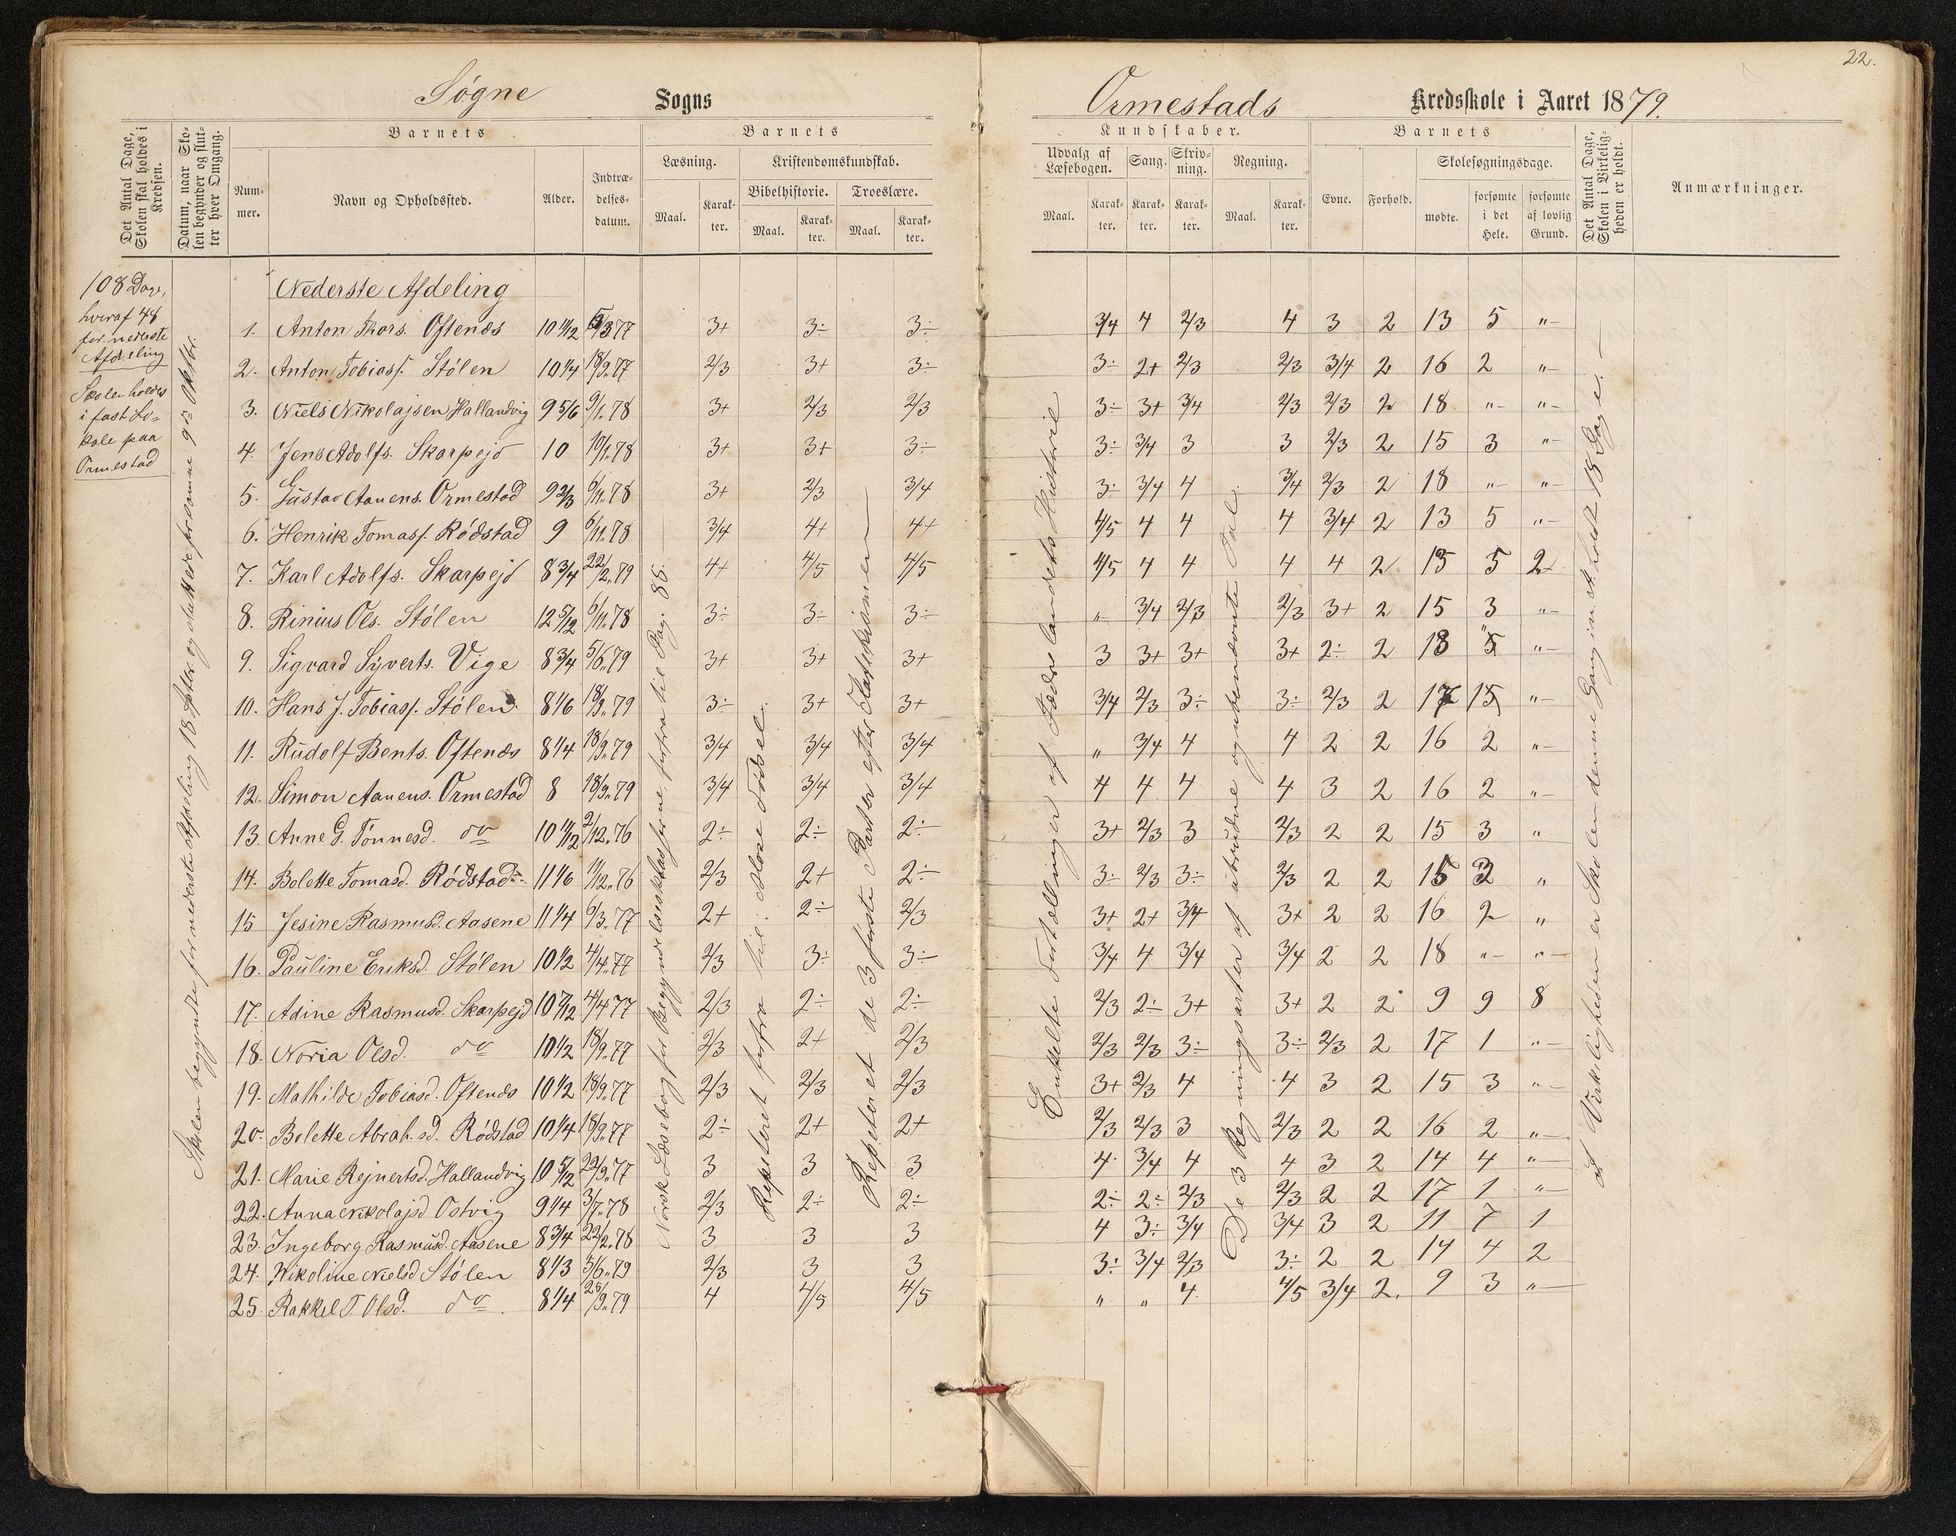 22.
Søgne Sogns Ormestads Kredsskole i Aaret 1879.
Det Antal Dage, Skolen skal holdes i Kredsen.
Datum, naar Skolen begynder og slutter hver Omgang.
Barnets
Nummer.
Navn og Opholdssted.
Alder.
Indtrædelsesdatum.
Barnets
Læsning.
Maal.
Karakter.
Kristendomskundskab.
Bibelhistorie.
Maal.
Karakter.
Troeslære.
Maal.
Karakter.
Kundskaber.
Udvalg af Læsebogen.
Maal.
Karakter.
Sang.
Karakter.
Skrivning.
Karakter.
Regning.
Maal.
Karakter.
Barnets
Evne.
Forhold.
Skolesøgningsdage.
mødte.
forsømte i det Hele.
forsømte af lovlig Grund.
Det Antal Dage, Skolen i Virkeligheden er holdt.
Anmærkninger.
108 Dage,
hvoraf 48
for nederste
Afdeling
Skolen holdes
i fast Lo-
kale paa
Ormestad
Skolen begyndte for nederste Afdeling 18 Septbr. og sluttede fremme 9de Oktbr.
Norsk Læsebog for Begyndelsesklasserne, forfra til Pag. 88.
Repeteret forfra til: Mose Fødsel.
Repeteret de 3 første Parter efter Katekismen
Enkelte Fortællinger af Fædrelandets Historie
De 3 Regningsarter af ubrudne og ubenævnte Tal.
I Virkeligheden er Skolen denne Gang in. holdt 18 Dage.
Nederste Afdeling
1. Anton Thors. Oftenæs 10 11/12 5/3 77 3+ 3÷ 3÷ 3/4 4 2/3 4 3 2 13 5 "
2. Anton Tobiass. Stølen 10 1/4 18/9 77 2/3 3+ 3÷ 3÷ 2+ 2/3 2/3 3/4 2 16 2 "
3. Niels Nikolajsen Hallandvig 9 5/6 9/1 78 3+ 2/3 2/3 3÷ 3+ 3/4 2/3 2/3 2 18 " "
4. Jens Adolfs. Skarpejd 10 10/1 78 3+ 3+ 3÷ 3÷ 3/4 3 3 2/3 2 15 3 "
5. Gustav Aanens. Ormestad 9 2/3 6/11 78 3+ 2/3 3/4 3÷ 3/4 4 3/4 2/3 2 18 " "
6. Henrik Tomass. Rødstad 9 6/11 78 3/4 4+ 4+ 4/5 4 4 4 3/4 2 13 5 "
7. Karl Adolfs. Skarpejd 8 3/4 22/2 79 4+ 4/5 4/5 4/5 4 4 4 4 2 13 5 2
8. Rinius Ols. Stølen 12 5/12 6/11 78 3÷ 3÷ 3÷ " 3/4 2/3 2/3 3+ 2 15 3 "
9. Sigvard Syverts. Vige 8 3/4 5/6 79 3+ 3+ 3+ 3 3+ 3+ 3+ 2÷ 2 18 " "
10. Hans J. Tobiass. Stølen 8 1/6 18/9 79 3÷ 3+ 3+ 3/4 2/3 3÷ 3÷ 2/3 2 17 1 "
11. Rudolf Bents. Oftenæs 8 1/4 18/9 79 3/4 3/4 3/4 " 3/4 4 4 2 2 16 2 "
12. Simon Aanens. Ormestad 8 18/9 79 3/4 3/4 3/4 4 4 4 4 3 2 16 2 "
13. Anne G. Tønnesd. do 10 11/12 2/12 76 2÷ 2÷ 2÷ 3+ 2/3 3 2/3 2 2 15 3 "
14. Bolette Tomasd. Rødstad 11 1/6 11/12 76 2/3 2+ 2÷ 3÷ 2/3 3÷ 2/3 2 2 15 3 "
15 Jesine Rasmusd. Aasene 11 1/4 6/3 77 2+ 2÷ 2/3 3+ 2+ 3/4 3+ 2 2 16 2 "
16. Pauline Eriksd. Stølen 10 1/2 4/4 77 2/3 3÷ 3÷ 3/4 4 3/4 3/4 2 2 18 " "
17. Adine Rasmusd. Skarpejd 10 7/12 4/4 77 2/3 2÷ 2÷ 2/3 2÷ 3+ 3+ 2 2 9 9 8
18. Noria Olsd. do 10 1/2 18/9 77 2/3 2+ 2/3 2/3 2/3 3÷ 3÷ 2/3 2 17 1 "
19. Mathilde Tobiasd. Oftenæs 10 1/2 18/9 77 2/3 2/3 2/3 3+ 2/3 4 4 3 2 15 3 "
20. Bolette Abrah.sd. Rødstad 10 1/4 18/9 77 2÷ 2+ 2+ 2/3 2/3 3 2/3 2 2 16 2 "
21. Marie Rejnertsd. Hallandvig 10 5/12 22/9 77 3 3 3 4 3/4 4 4 3 2 14 4 "
22. Anna Nikolajsd Ostvig 9 1/4 3/7 78 2/3 2÷ 2÷ 2÷ 2÷ 2/3 2/3 2 2 17 1 "
23. Ingeborg Rasmusd. Aasene 8 3/4 22/2 78 3 3 3 4 3÷ 3/4 3/4 3 2 11 7 1
24. Nikoline Nielsd Stølen 8 1/3 5/6 79 2/3 3 3 3÷ 3/4 2/3 3÷ 2 2 14 4 2
25. Rakkel T Olsd. do 8 1/4 26/9 79 4 4/5 4/5 " " 4 4/5 3/4 2. 9 3 "